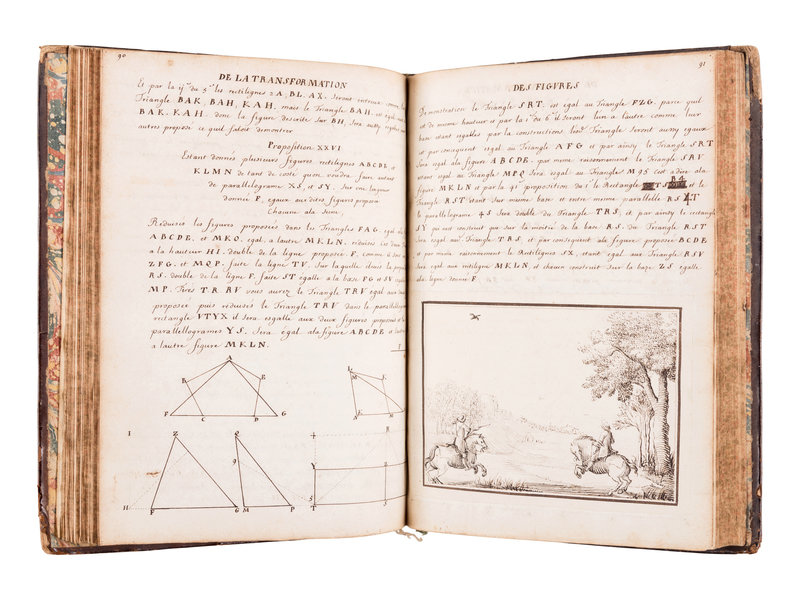 90
DE LA TRANSFORMATION
Et par la du 5 les rectilignes 2A, BL, AX, Seront entreux comme les
Triangle BAK, BAH, KAH, mais le Triangle BAH, est egal aux
BAK, KAH, donc la figure descritte sur BH, sera aussy egalle aux
autres proposé ce quil faloit demontrer
Proposition XXVI
Estant donnés plusieurs figures rectilignes ABCDE, et
KLMN de tant de coste quon voudra faire autant
de parallelograme XS, et SY, Sur une largeur
donnée F, egaux aux dites figures proposeé
Chacune ala Sienne,
Reduises les figures proposées dans les Triangles FAG, egal
ABCDE, et MKO, egal, a lautre MKLN, reduises les dans
a la hauteur HI, double de la ligne proposee F, comme
ZFG, et MQP, faite la ligne TV, Sur laquelle
RS, double de la ligne F, faite ST egalle a la base FG et SV egalle
MP, Tirés TR, RV vous aurez le Triangle TRV egal aux
proposée puis reduisés le Triangle TRV dans le parallelo
rectangle VTYX il Sera esgalle aux deux figures proposees
parallellogrames YS, Sera egal ala figure ABCDE et lautre
a lautre figure MKLN.
A
B
E
F
C
D
G
L
M
K
N
I
Z
Q
R
Y
9
H
F
G
M
P
T
S
91
DES FIGURES
Demonstration le Triangle SRT, est egal au Triangle FZG, parce quil
est de mesme hauteur et par la 1e du 6e il seront lun a lautre comme leur
base etant esgalles par la constructions Triangle seront aussy egaux
et par consequent egal au Triangle AFG et par ainsy le Triangle SRT
Sera egal ala figure ABCDE, par mime raisonnement le Triangle SRV
etant egal au Triangle MPQ Sera egal au Triangle M95 c'est a dire ala
figure MKLN et par la 41 proposition du 1 le Rectangle TS R4 et le
Triangle RST etant sur mesme base et entre mesme parallelle RS 4T
le parallelograme 4S Sera double du Triangle TRS, et par ainsy le rectangle
SY qui est construit que sur la moitié de la base RS, du Triangle RST
Sera egal au Triangle TRS, et par consequent ala figure proposee BCDE
et par mime raisonnement le Rectilignes SX, etant egal aux Triangle RSV
Sera egal aux rectiligne MKLN et chacun construit Sur la base ZS egalle
ala ligne donné F